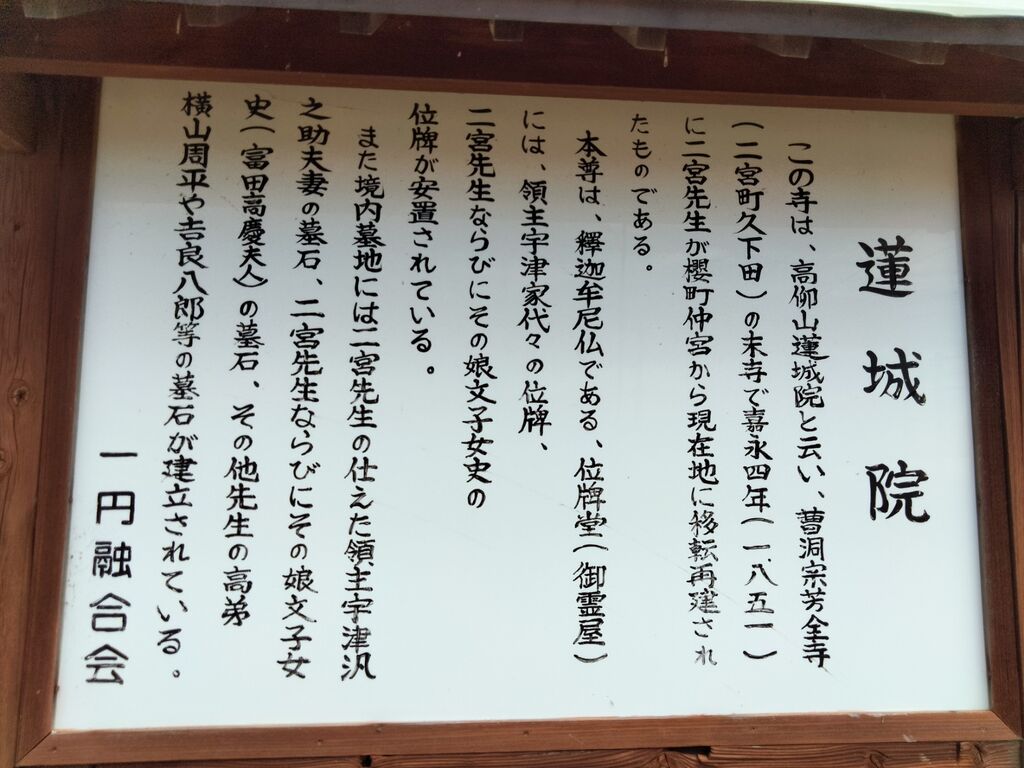 蓮城院
この寺は、高仰山蓮城院と云い、曹洞宗芳全寺
(二宮町久下田)の末寺で嘉永四年(一八五一)
に二宮先生が櫻町仲宮から現在地に移転再建され
たものである。
本尊は、釋迦牟尼仏である、位牌堂(御霊屋)
には、領主宇津家代々の位牌、
二宮先生ならびにその娘文子女史の
位牌が安置されている。
また境内墓地には二宮先生の仕えた領主宇津汎
之助夫妻の墓石、二宮先生ならびにその娘文子女
史(富田高慶夫人)の墓石、その他先生の高弟
横山周平や吉良八郎等の墓石が建立されている。
一円融合会